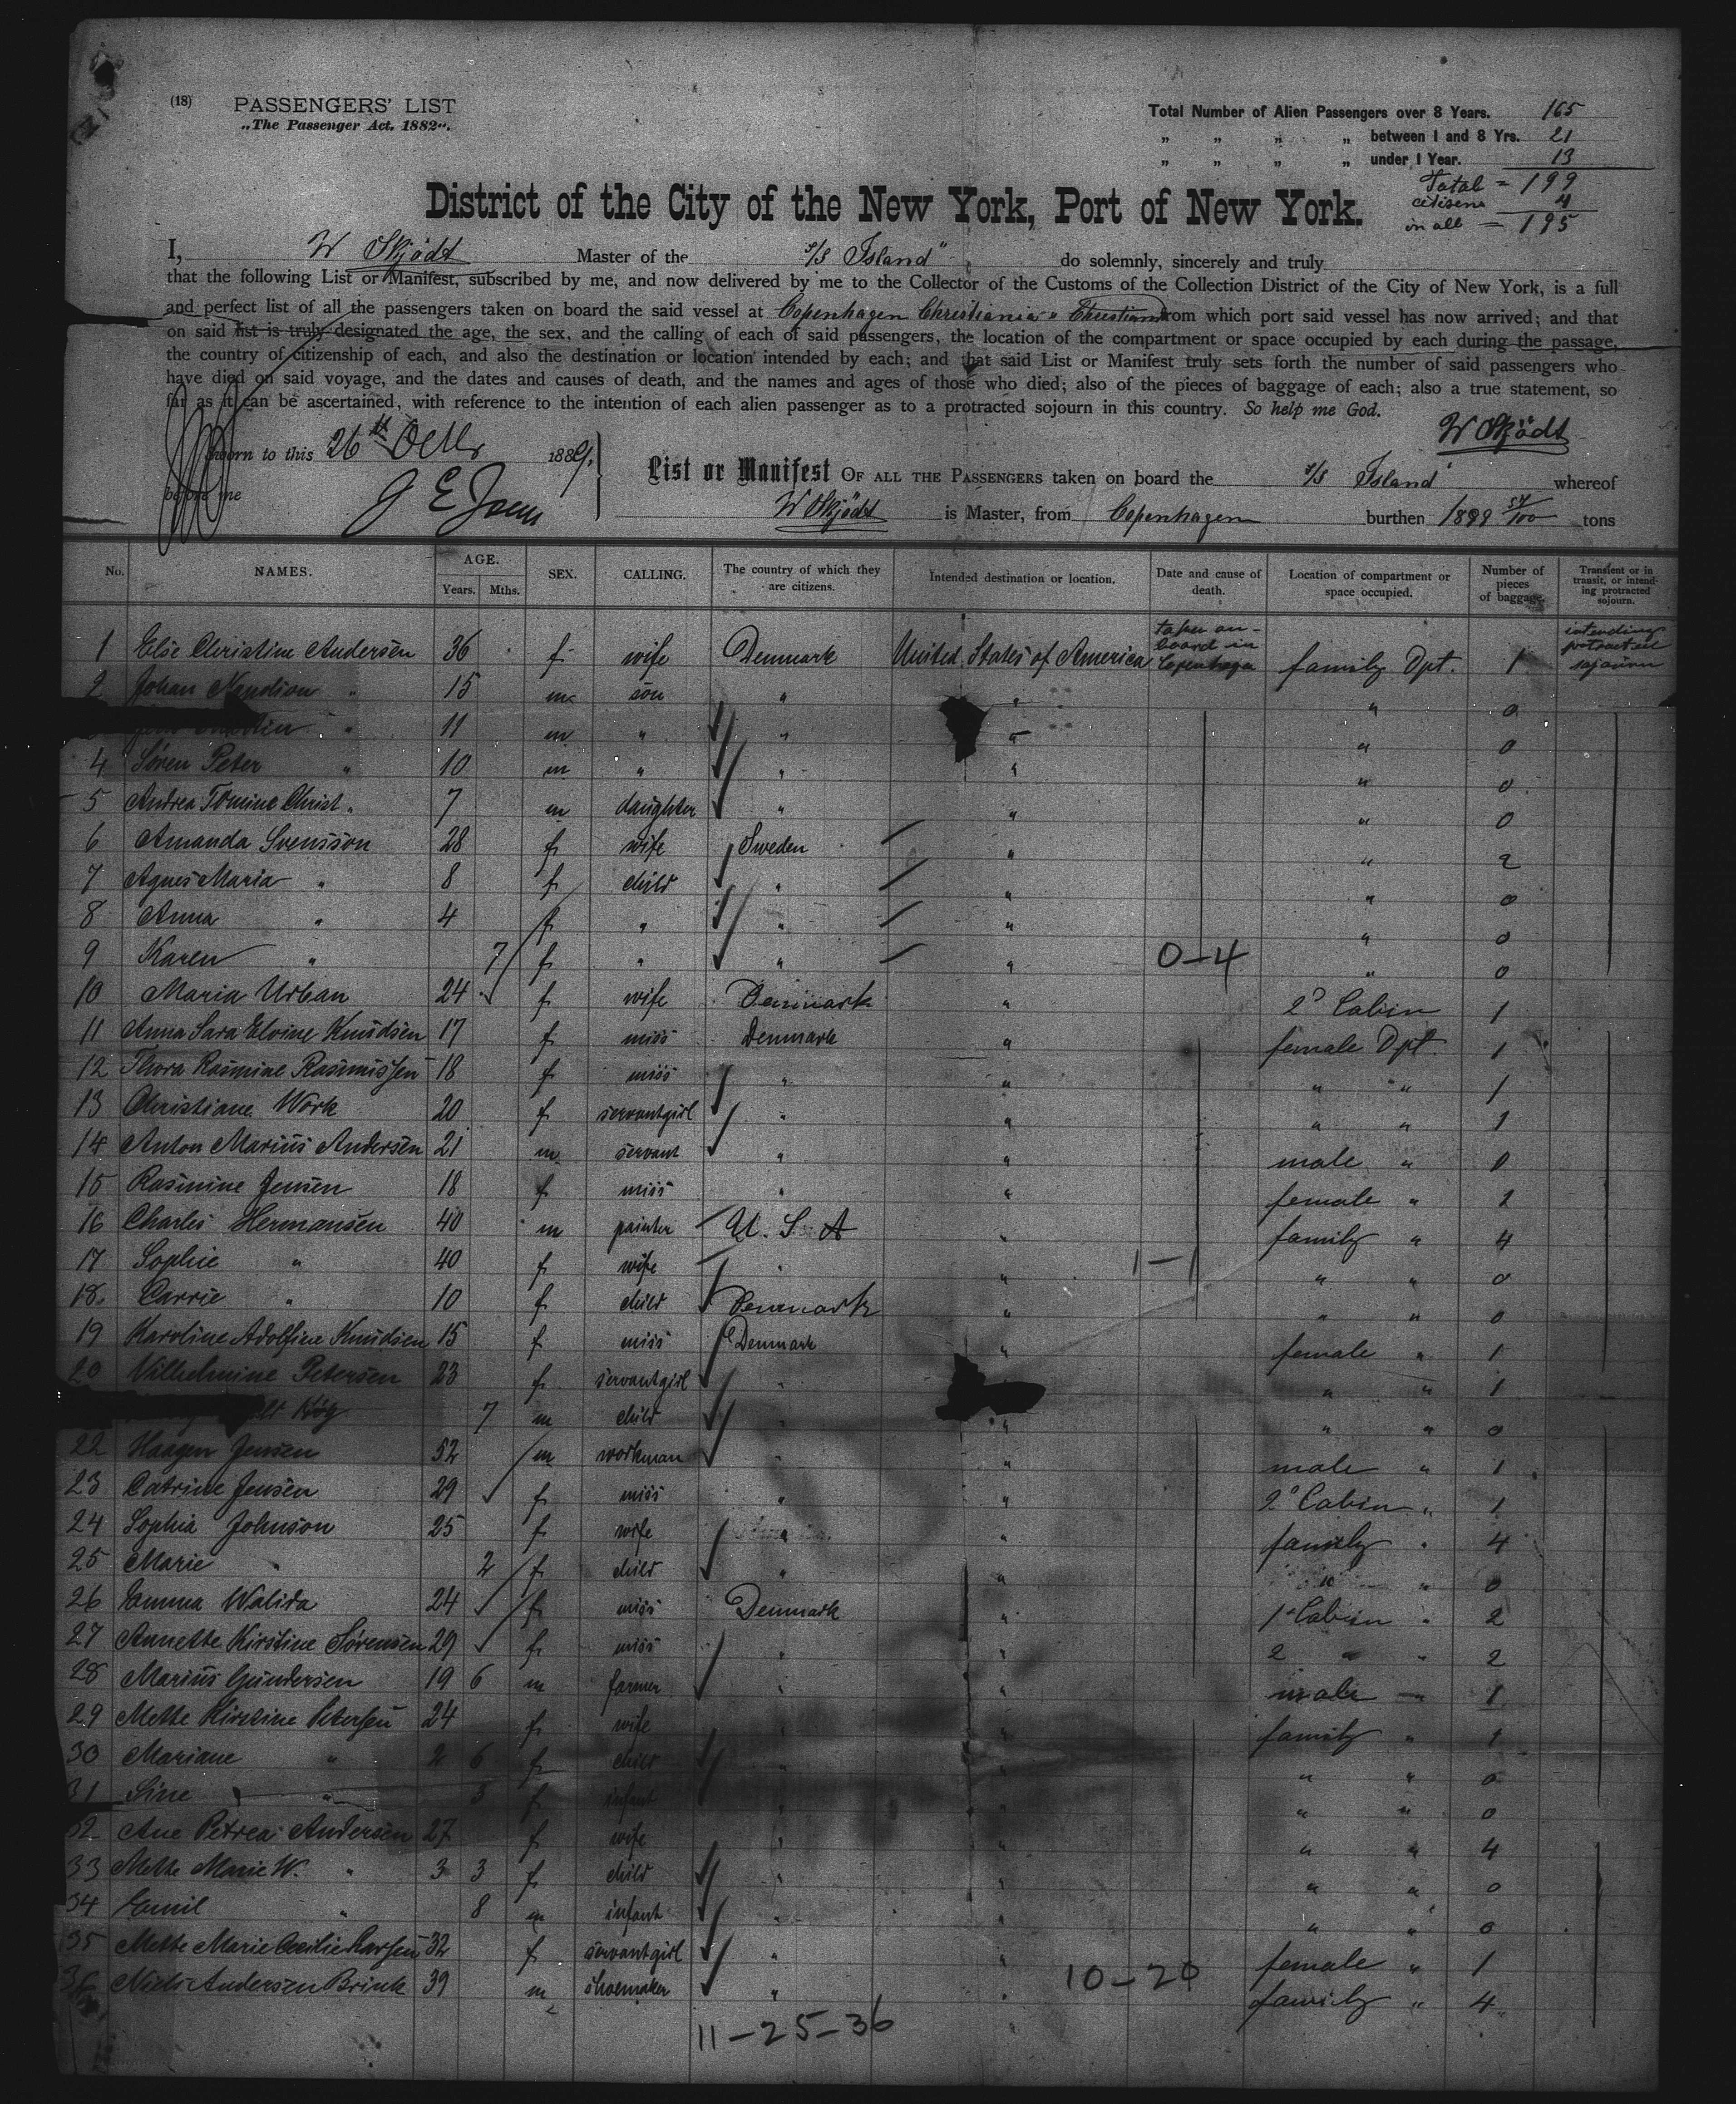 (18) PASSENGERS' LIST
„The Passenger Act. 1882".
Total Number of Alien Passengers over 8 Years. 165
„ „ „ „ between 1 and 8 Yrs. 21
„ „ „ „ under 1 Year. 13
Total = 199
citizens 4
in all = 195
District of the City of the New York, Port of New York.
I, W Skjödt Master of the S/S Island" do solemnly, sincerely and truly
that the following List or Manifest, subscribed by me, and now delivered by me to the Collector of the Customs of the Collection District of the City of New York, is a full
and perfect list of all the passengers taken on board the said vessel at Copenhagen Christiania & Christiansand from which port said vessel has now arrived; and that
on said list is truly designated the age, the sex, and the calling of each of said passengers, the location of the compartment or space occupied by each during the passage,
the country of citizenship of each, and also the destination or location intended by each; and that said List or Manifest truly sets forth the number of said passengers who
have died on said voyage, and the dates and causes of death, and the names and ages of those who died; also of the pieces of baggage of each; also a true statement, so
far as it can be ascertained, with reference to the intention of each alien passenger as to a protracted sojourn in this country. So help me God.
W Skjödt
Sworn to this 26th 1889.
before me
List or Manifest OF ALL THE PASSENGERS taken on board the S/S Island" whereof
W Skjödt is Master, from Copenhagen burthen 1899 57/100 tons
No. NAMES. AGE. Years. Mths. SEX. CALLING. The country of which they are citizens. Intended destination or location. Date and cause of death. Location of compartment or space occupied. Number of pieces of baggage. Transient or in transit, or intending protracted sojourn.
1 Else Christine Andersen 36 f wife Denmark United States of America taken on board in Copenhagen family Dpt. 1 intending protracted sojourn
2 Johan " 15 m son " " " 0
11 m " " " " 0
4 Sören Peter " 10 m " " " " 0
5 Andrea Tomine Christ. " 7 m daughter " " " 0
6 Amanda Svensson 28 f wife Sweden " " 2
7 Agnes Maria " 8 f child " " " 0
8 Anna " 4 f " " " " 0
9 Karen " 7 f " " " 0-4 " 0
10 Maria Urban 24 f wife Denmark " 2° Cabin 1
11 Anna Sara Elvine Knudsen 17 f miss Denmark " female Dpt. 1
12 Thora Rasmine Rasmussen 18 f miss " " " " 1
13 Christiane Work 20 f servantgirl " " " " 1
14 Anton Marius Andersen 21 m servant " " male " 0
15 Rasmine Jensen 18 f miss " " female " 2
16 Charles Hermansen 40 m painter U. S. A " family " 4
17 Sophie " 40 f wife " " 1-1 " " 0
18. Carrie " 10 f child Denmark " " " 0
19 Karoline Adolfine Knudsen 15 f miss Denmark " female " 1
20 Vilhelmine Petersen 23 f servantgirl " " " " 1
7 m child " " " " 0
22 Haagen Jensen 52 m workman " " male " 1
23 Catrine Jensen 29 f miss " " 2° Cabin " 1
24 Sophia Johnson 25 f wife " " family " 4
25 Marie " 2 f child " " " " 0
26 Emma Walida 24 f miss Denmark " 1° Cabin " 2
27 Annette Kirstine Sörensen 29 f miss " " 2 " " 2
28 Marius Gundersen 19 6 m farmer " " male " 1
29 Mette Kirstine Petersen 24 f wife " " family " 1
30 Mariane " 2 6 f child " " " " 0
31 Sine " 3 f infant " " " " 0
32 Ane Petrea Andersen 27 f wife " " " " 4
33 Mette Marie W. " 3 3 f child " " " " 0
34 Emil " 8 m infant " " " " 0
35 Mette Marie Cecilie Larsen 32 f servantgirl " " female " 1
36 Niels Andersen Brink 39 m shoemaker " " 10-20 family " 4
11-25-36